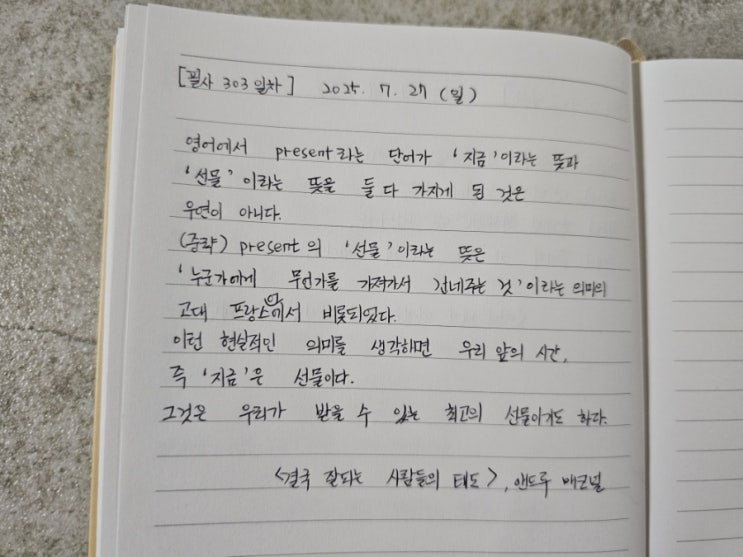 [필사 303일차] 2025. 7. 27 (일)
영어에서 present라는 단어가 '지금'이라는 뜻과
'선물'이라는 뜻을 둘 다 가지게 된 것은
우연이 아니다.
(중략) present의 '선물'이라는 뜻은
'누군가에게 무언가를 가져가서 건네주는 것'이라는 의미의
고대 프랑스어에서 비롯되었다.
이런 현실적인 의미를 생각하면 우리 앞의 시간,
즉 '지금'은 선물이다.
그것은 우리가 받을 수 있는 최고의 선물이기도 하다.
<결국 잘되는 사람들의 태도>, 앤드루 매코널